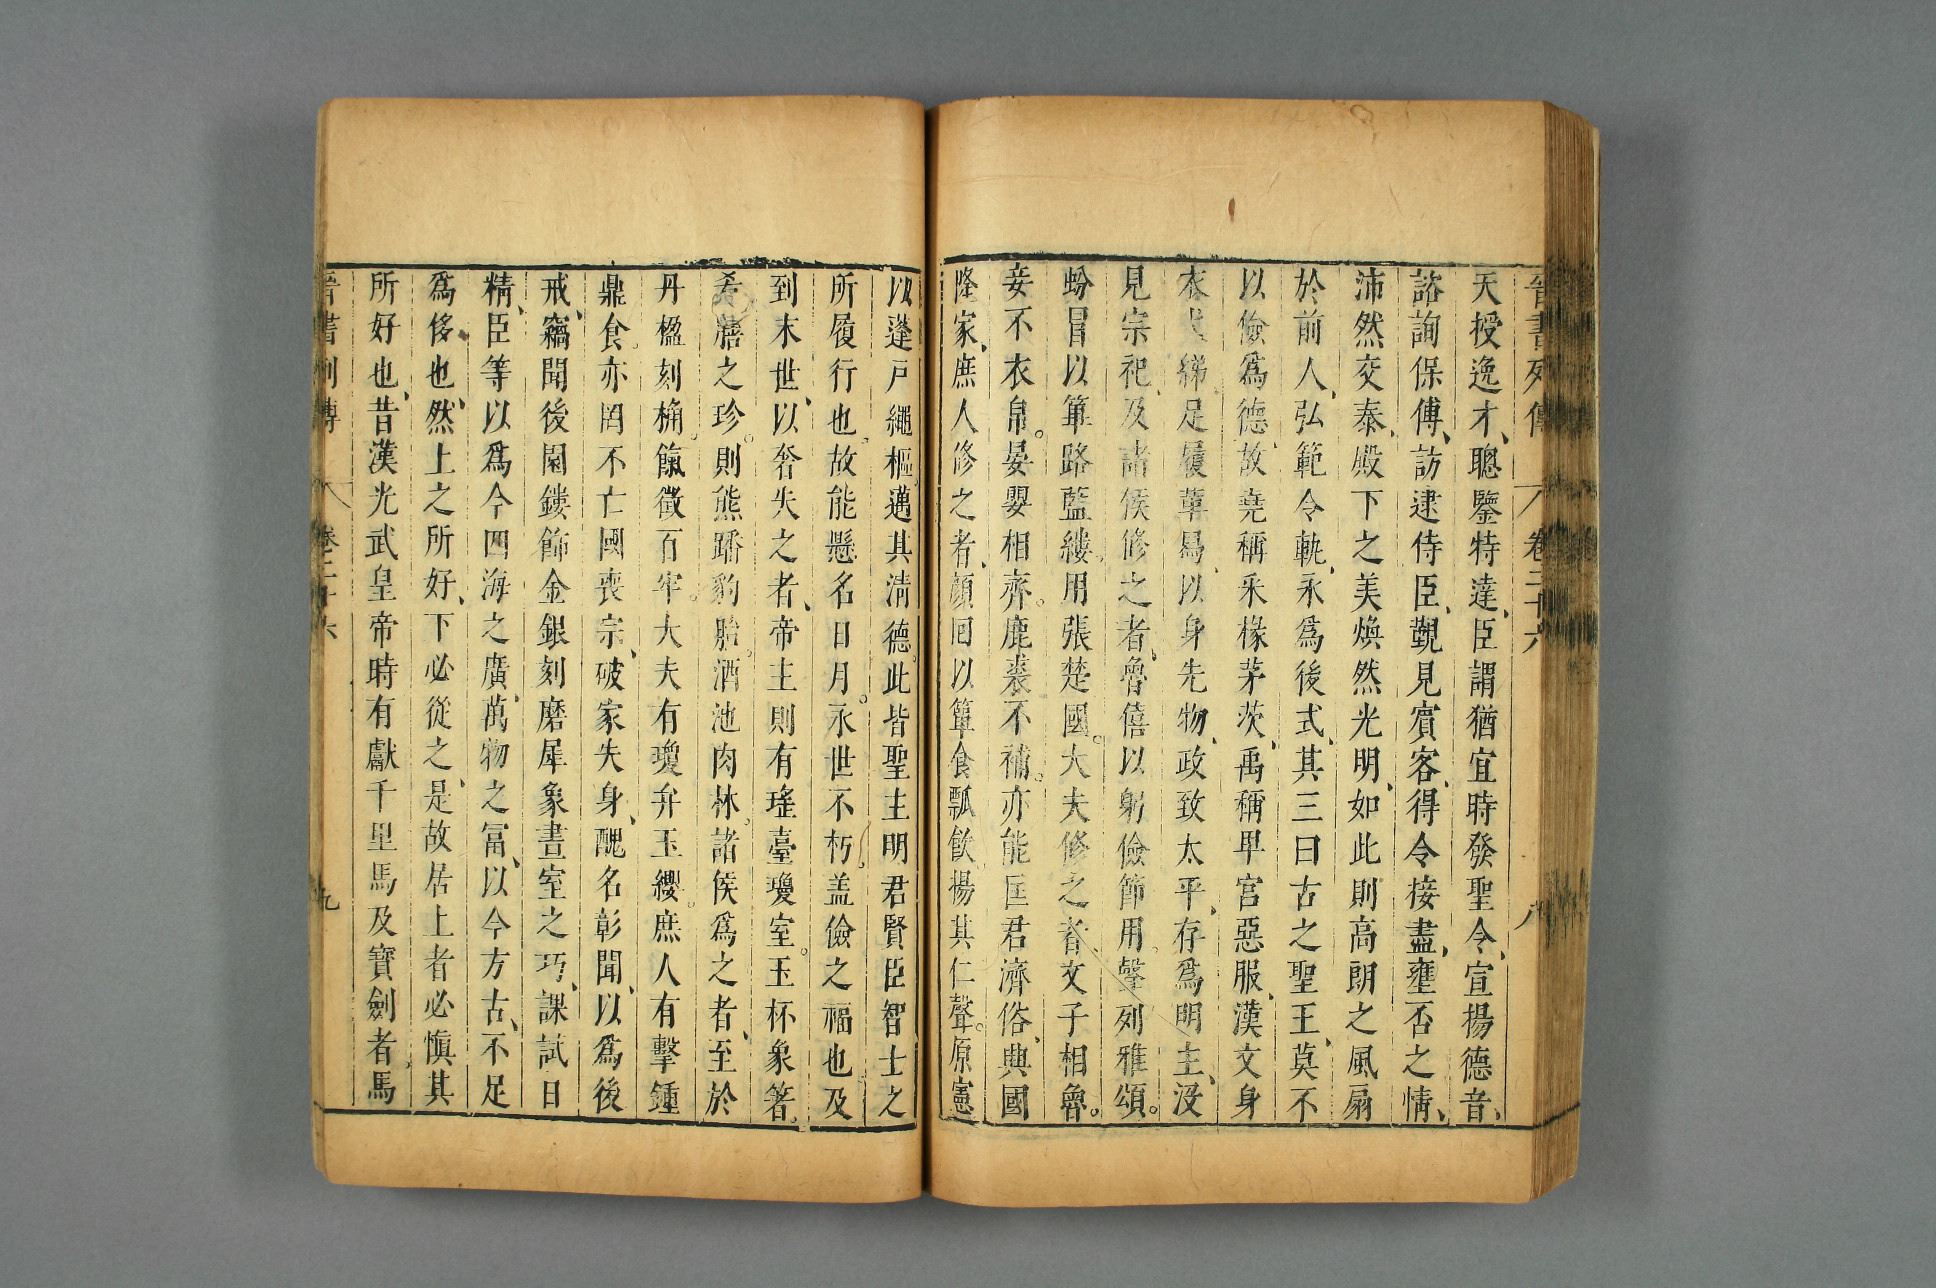 晉書列傳 卷二十六 八
天授逸才、聰鑒特達、臣謂猶宜時發聖令、宣揚德音、
諮詢保傅、訪逮侍臣、覲見賓客、得令接盡、壅否之情、
沛然交泰、殿下之美煥然光明、如此則高朗之風扇
於前人、弘範令軌、永爲後式、其三曰古之聖王、莫不
以儉爲德、故堯稱采椽茅茨、禹稱卑宮惡服、漢文身
衣弋綈、足履革舄、以身先物、政致太平、存爲明主、沒
見宗祀、及諸侯修之者、魯僖以躬儉節用、聲列雅頌。
蚡冒以篳路藍縷、用張楚國。大夫修之者、文子相魯。
妾不衣帛。晏嬰相齊。鹿裘不補。亦能匡君濟俗、興國
隆家、庶人修之者、顏回以簞食瓢飲、揚其仁聲。原憲
以蓬戸繩樞、邁其清德。此皆聖主明君賢臣智士之
所履行也。故能懸名日月。永世不朽。盖儉之福也、及
到末世、以奢失之者、帝主則有瑤臺瓊室。玉杯象箸。
肴膳之珍。則熊蹯豹胎。酒池肉林。諸侯爲之者、至於
丹楹刻桷。餼徵百牢。大夫有瓊弁玉纓。庶人有擊鍾
鼎食。亦罔不亡國喪宗、破家失身、醜名彰聞、以爲後
戒、竊聞後園鏤飾金銀刻磨犀象、畫室之巧、課試日
精、臣等以爲今四海之廣、萬物之富、以今方古、不足
爲侈也、然上之所好、下必從之、是故居上者必愼其
所好也、昔漢光武皇帝時有獻千里馬及寶劍者、馬
晉書列傳 卷二十六 九